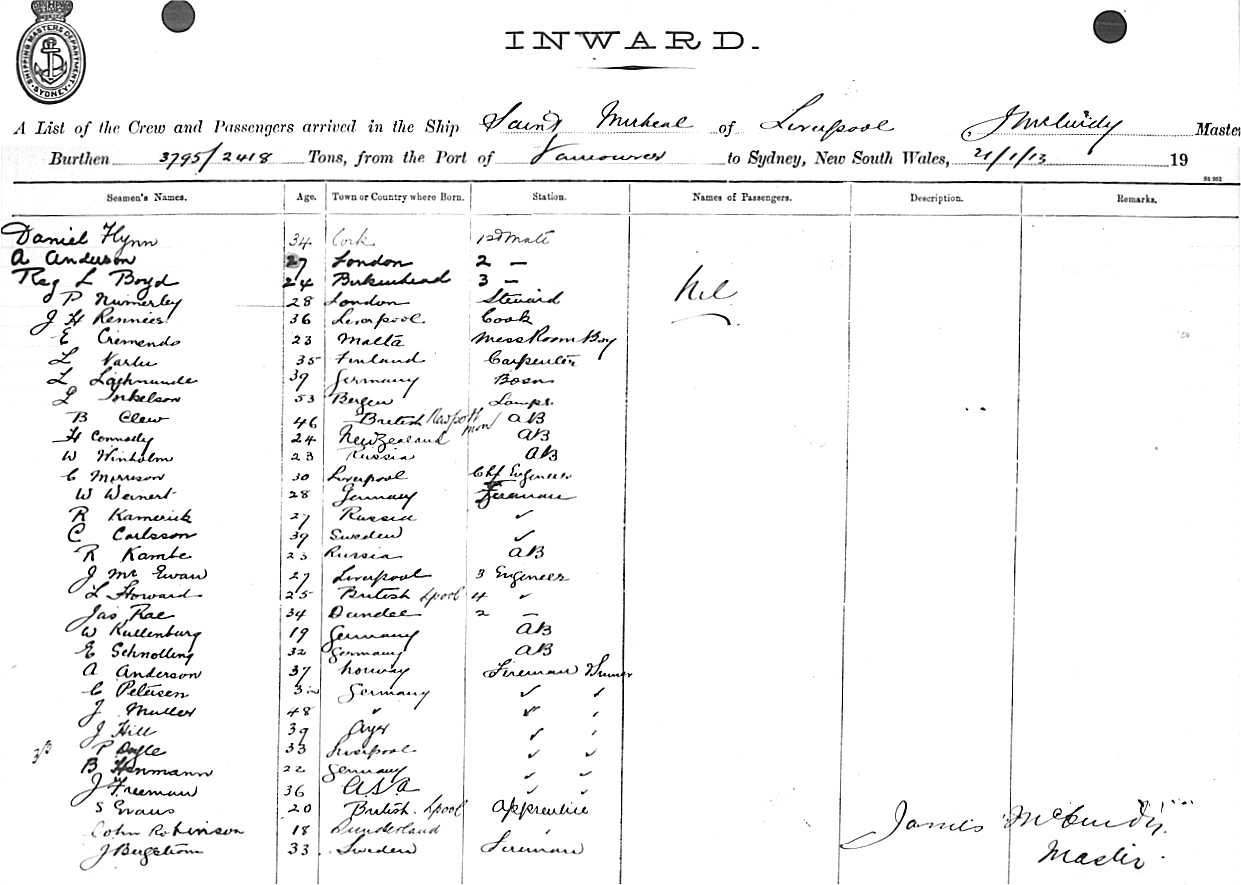 SHIPPING MASTERS DEPARTMENT SYDNEY
INWARD.
A List of the Crew and Passengers arrived in the Ship Saint Micheal of Liverpool, J McCurdy Master
Burthen 3795/2418 Tons, from the Port of Vancouver to Sydney, New South Wales, 21/1/13 19
Seamen's Names. Age. Town or Country where Born. Station. Names of Passengers. Description. Remarks.
Daniel Flynn 34 Cork 1st Mate
A Anderson 27 London 2 —
Reg L Boyd 24 Birkenhead 3 —
Nil
P Numerley 28 London Steward
J H Rennies 36 Liverpool Cook
E Cremendo 23 Malta Mess Room Boy
L 35 Finland Carpenter
L Lachmunde 39 Germany Bosn
L Torkelson 53 Bergen Lamps.
B Clew 46 British Newport Mon AB
H Connolly 24 New Zealand AB
W Winholm 23 Russia AB
C Morrison 30 Liverpool Chf Engineer
W Weinert 28 Germany Fireman
R Kamerick 27 Russia ✓
C Carlsson 39 Sweden ✓
R Kambe 23 Russia AB
J Mc Ewan 27 Liverpool 3 Engineer
L Howard 25 British Lpool 4 ✓
Jas Rae 34 Dundee 2 —
W Kullenburg 19 Germany AB
E Schnolling 32 Germany AB
A Anderson 37 Norway Fireman Trimmer
C Petersen Germany ✓ ✓
J Muller 48 " ✓ ✓
J Hill 39 Ayer ✓ ✓
P Doyle 33 Liverpool ✓ ✓
B Henmann 22 Germany ✓ ✓
J Freeman 36 USA ✓ ✓
S Evans 20 British. Lpool Apprentice
John Robinson 18 Sunderland "
J Bergstrom 33 Sweden Fireman
James McCurdy
Master